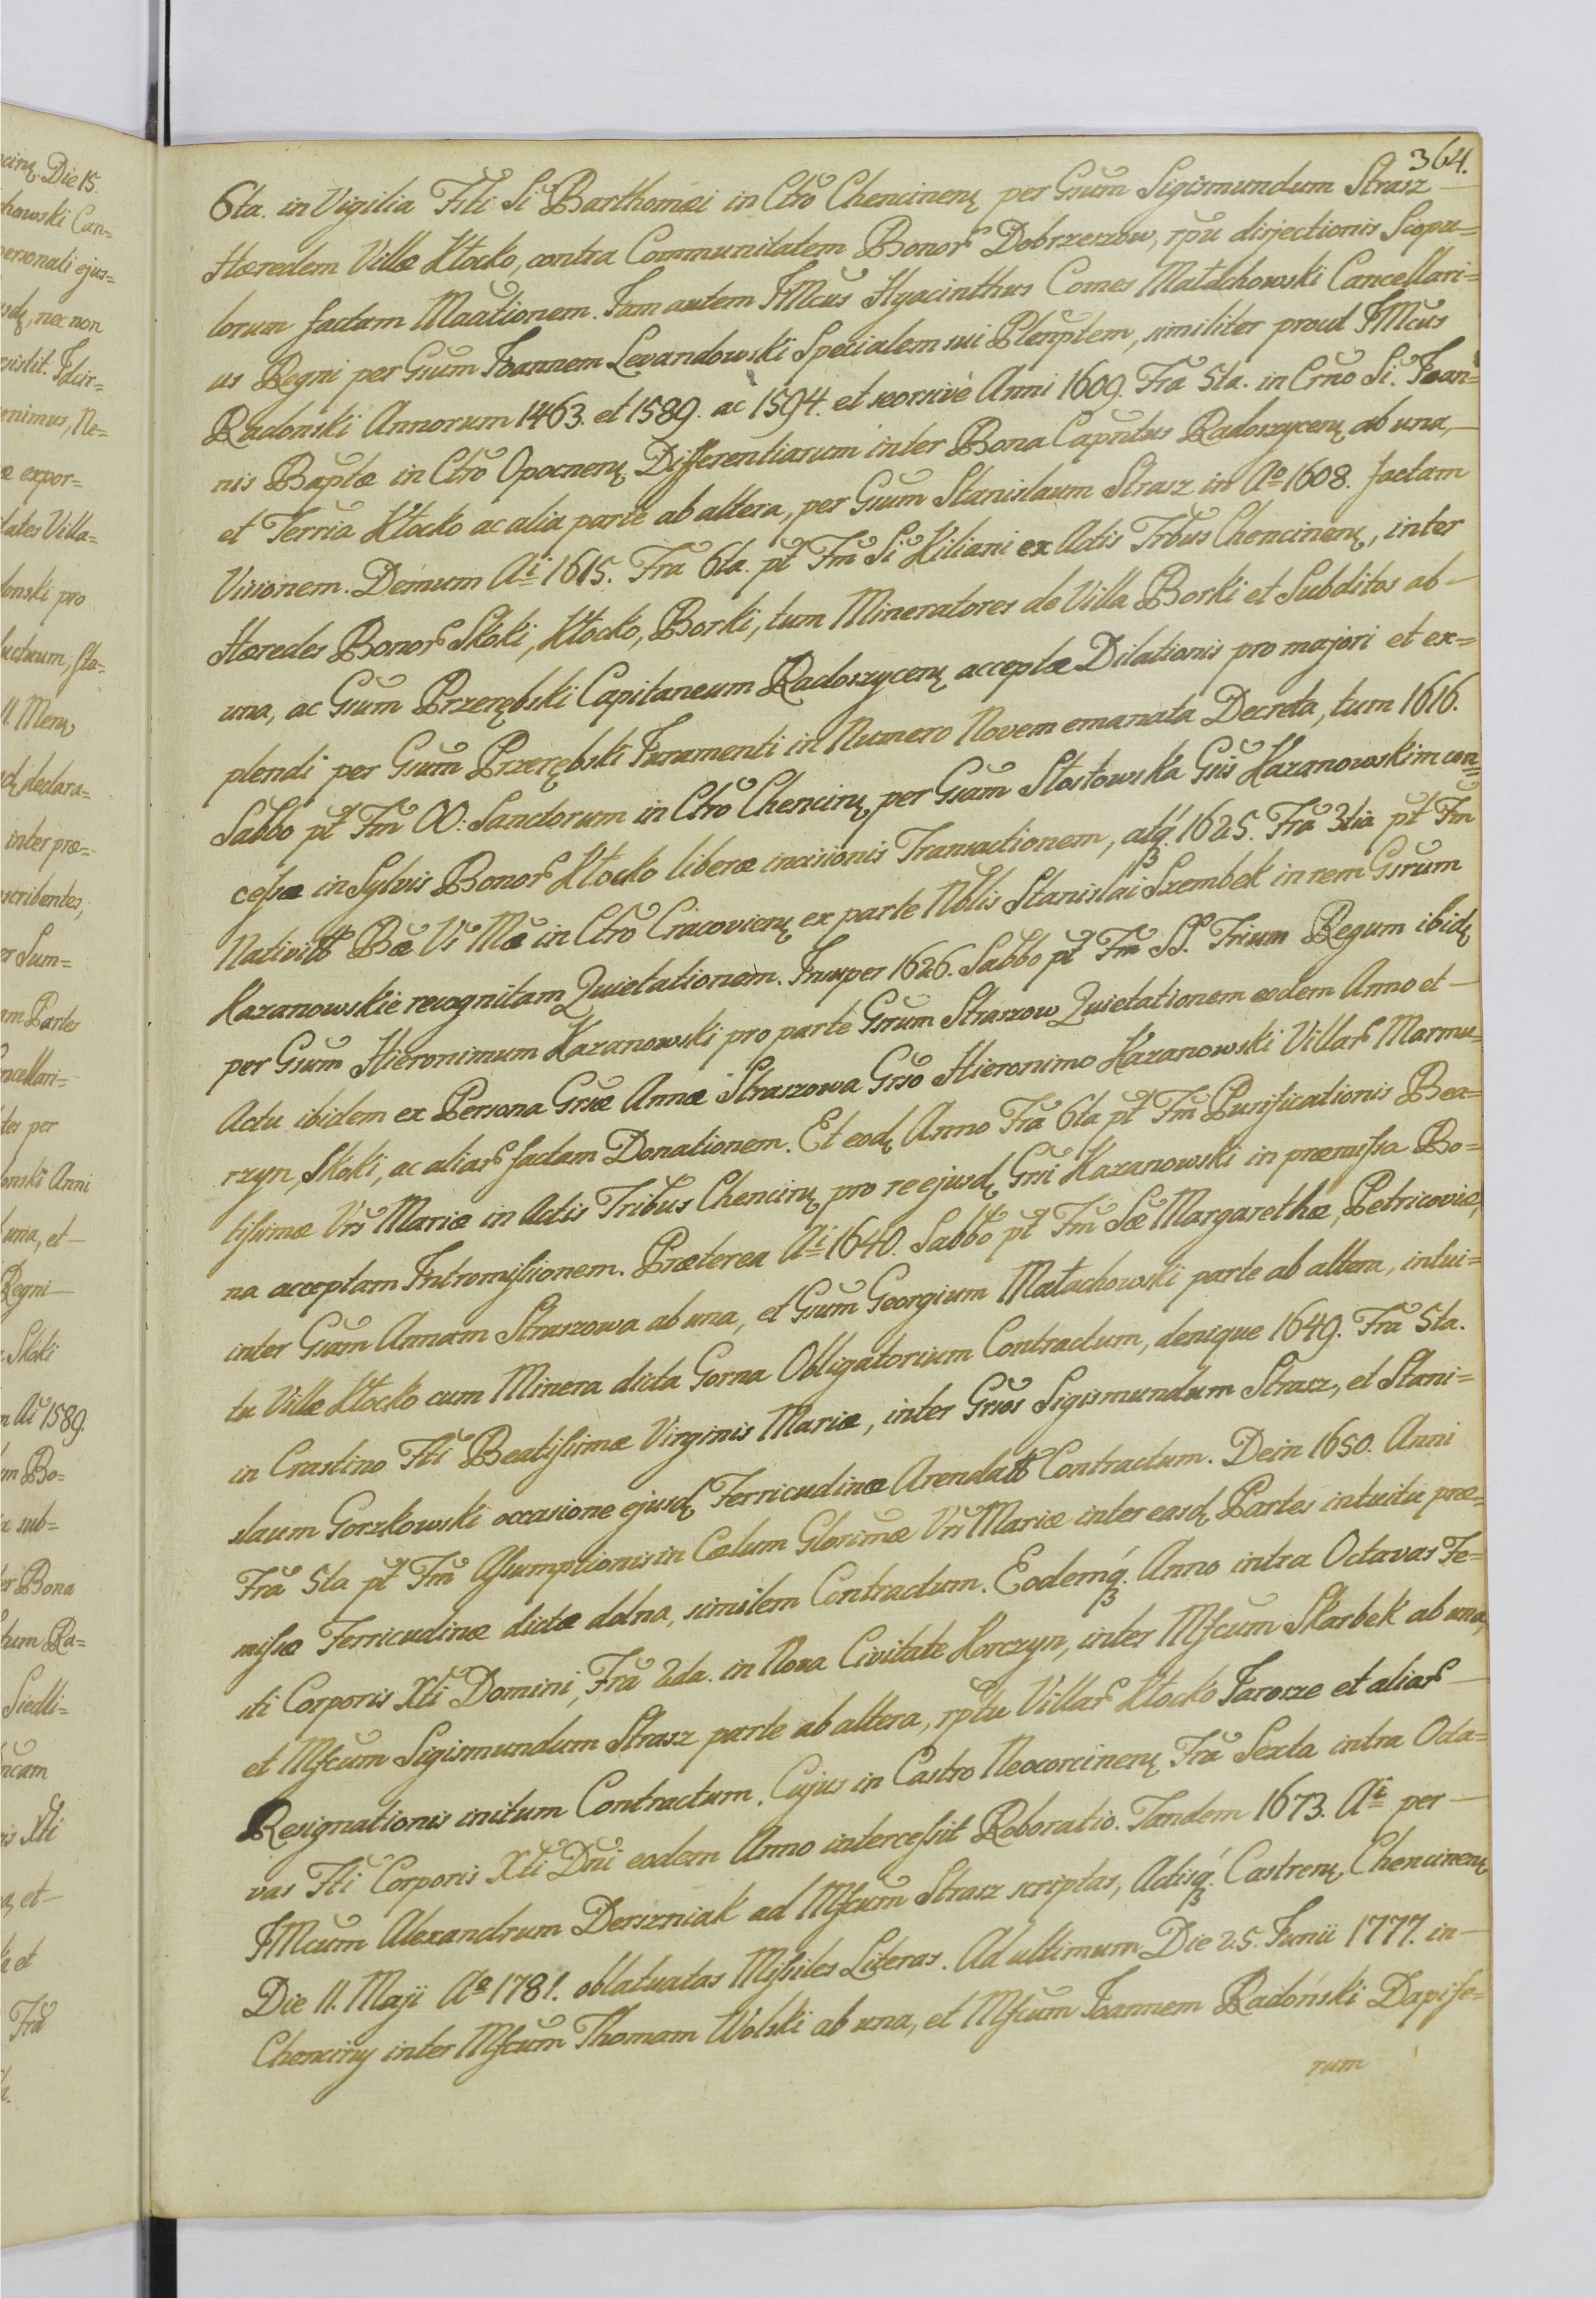 364.
6ta. in Vigilia Fti Si Barthomæi in Ctro Chencinenꝫ per Gsum Sigismundum Strasz
Hæredem Villæ Kłocko, contra Communitatem Bonorꝫ Dobrzeszow, rpu disjectionis Scopu=
lorum factam Maationem. Jam autem JMcus Hyacinthus Comes Małachowski Cancellari=
us Regni per Gsum Joannem Levandowski Specialem sui Plenptem, similiter proud JMcus
Radonski Annorum 1463. et 1589. ac 1594. et seorsivè Anni 1609. Fra 5ta. in Crno Si. Joan=
nis Baptæ in Ctro Opocnenꝫ Differentiarum inter Bona Caputus Radoszycenꝫ ab una,
et Terria Kłocko ac alia parte ab altera, per Gsum Stanislaum Strasz in Ao 1608. factam
Visionem. Demum Ai 1615. Fra 6ta. pt Fm Si Kiliani ex Actis Trbus Chencinenꝫ, inter
Hæredes Bonorꝫ Skoki, Kłocko, Borki, tum Mineratores de Villa Borki et Subditos ab
una, ac Gsum Przerębski Capitaneum Radoszycenꝫ acceptæ Dilationis pro majori et ex=
plendi per Gsum Przerębski Juramenti in Numero Novem emanata Decreta, tum 1616.
Sabbo pt Fm OO: Sanctorum in Ctro Chencinꝫ per Gsam Słostowska Gsis Kazanowskim con=
cessæ in Sylvis Bonorꝫ Kłocko liberæ incisionis Transactionem, atqꝫ 1625. Fra 3tia pt Fm
Nativittt Bæ Vi Mæ in Ctro Cracovienꝫ ex parte Nblis Stanislai Szembek in rem Gsrum
Kazanowskie recognitam Quietationem. Insuper 1626. Sabbo pt Fm SS. Trium Regum ibidꝫ
per Gsum Hieronimum Kazanowski pro parte Gsrum Straszow Quietationem eodem Anno et
Actu ibidem ex Persona Grsæ Annæ Straszowa Grso Hieronimo Kazanowski Villarꝫ Marmu=
rzyn, Skoki, ac aliarꝫ factam Donationem. Et eodꝫ Anno Fra 6ta pt Fm Purificationis Bea=
tissimæ Vrs Mariæ in Actis Tribus Chencinꝫ pro re ejusdꝫ Grsi Kazanowski in præmissa Bo=
na acceptam Intromissionem. Præterea Ai 1640. Sabbo pt Fm Sæ Margarethæ, Petricoviæ,
inter Gsam Annam Straszowa ab una, et Gsum Georgium Małachowski parte ab altera, intui=
tu Villæ Kłocko cum Minera dicta Gorna Obligatorium Contractum, denique 1649. Fra 5ta.
in Crastino Fti Beatissimæ Virginis Mariæ, inter Grsos Sigismundum Strasz, et Stani=
slaum Gorzkowski occasione ejusdꝫ Ferricudinæ Arendattt Contractum. Dein 1650. Anni
Fra 5ta pt Fm Assumptionis in Cœlum Glorimæ Vrs Mariæ inter easdꝫ Partes intuitu præ=
missæ Ferricudinæ dictæ dolna, similem Contractum. Eodemqꝫ Anno intra Octavas Fe=
sti Corporis Xti Domini, Fra 2da. in Nova Civitate Korczyn, inter Mfcum Skarbek ab una,
et Mfcum Sigismundum Strasz parte ab altera, rptu Villarꝫ Kłocko Jarosze et aliarꝫ
Resignationis initum Contractum. Cujus in Castro Neocorcinenꝫ Fra Sexta intra Octa=
vas Fti Corporis Xti Dni eodem Anno intercessit Roboratio. Tandem 1673. Ai per
JMcum Alexandrum Derszniak ad Mfcum Strasz scriptas, Actisqꝫ Castrenꝫ Chencinenꝫ
Die 11. Maji Ao 1781. oblatuatas Missiles Literas. Ad ultimum Die 25. Junii 1777. in
Chenciny inter Mfcum Thomam Wolski ab una, et Mfcum Joannem Radoński Dapife=
rum